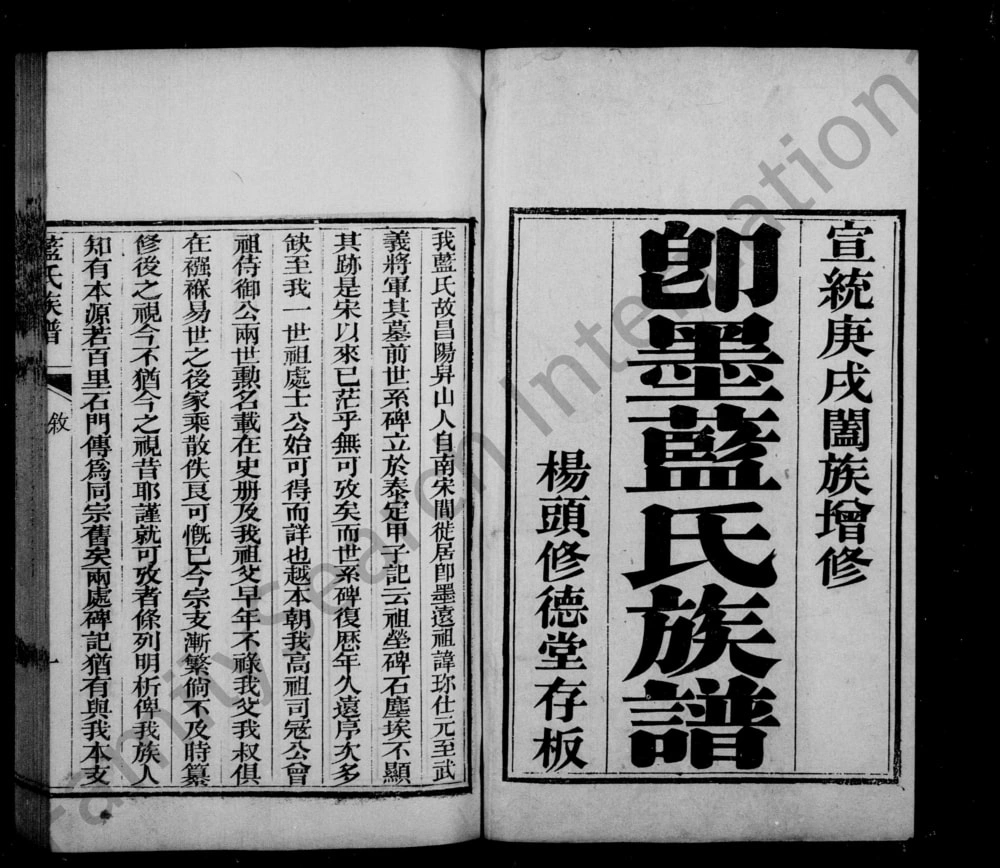 宣統庚戌闔族增修
卽墨藍氏族譜
楊頭修德堂存板
我藍氏故昌陽昇山人自南宋間徙居卽墨遠祖諱珎仕元至武
義將軍其墓前世系碑立於泰定甲子記云祖塋碑石塵埃不顯
其跡是宋以來已茫乎無可攷矣而世系碑復歷年久遠序次多
缺至我一世祖處士公始可得而詳也越本朝我高祖司冦公曾
祖侍御公兩世勳名載在史册及我祖父早年不祿我父我叔俱
在襁褓易世之後家乘散佚良可慨已今宗支漸繁倘不及時纂
修後之視今不猶今之視昔耶謹就可攷者條列明析俾我族人
知有本源若百里石門傳爲同宗舊矣兩處碑記猶有與我本支
藍氏族譜
敘
一
FamilySearch International